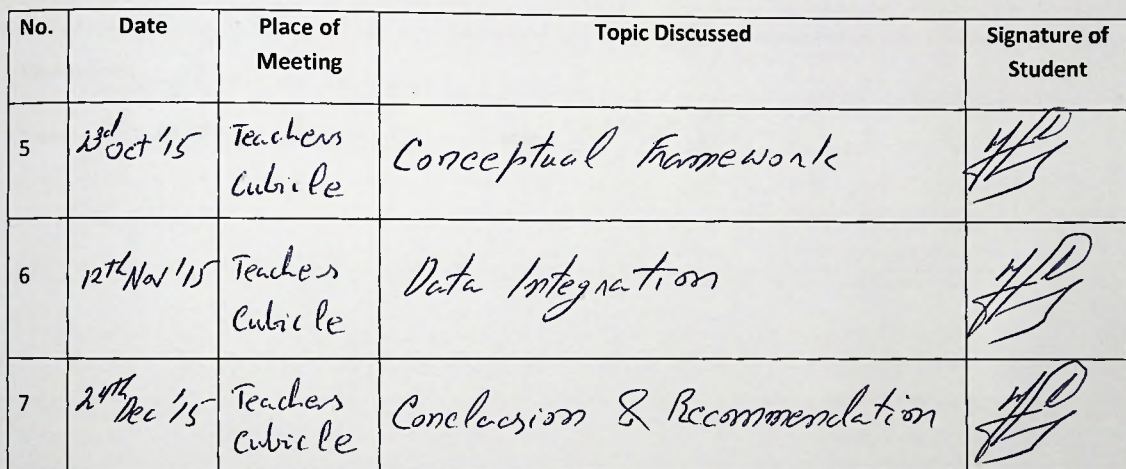 No. Date Place of Meeting Topic Discussed Signature of Student
5 23rd Oct '15 Teachers Cubicle Conceptual Framework
6 12th Nov '15 Teachers Cubicle Data Integration
7 24th Dec '15 Teachers Cubicle Conclusion & Recommendation